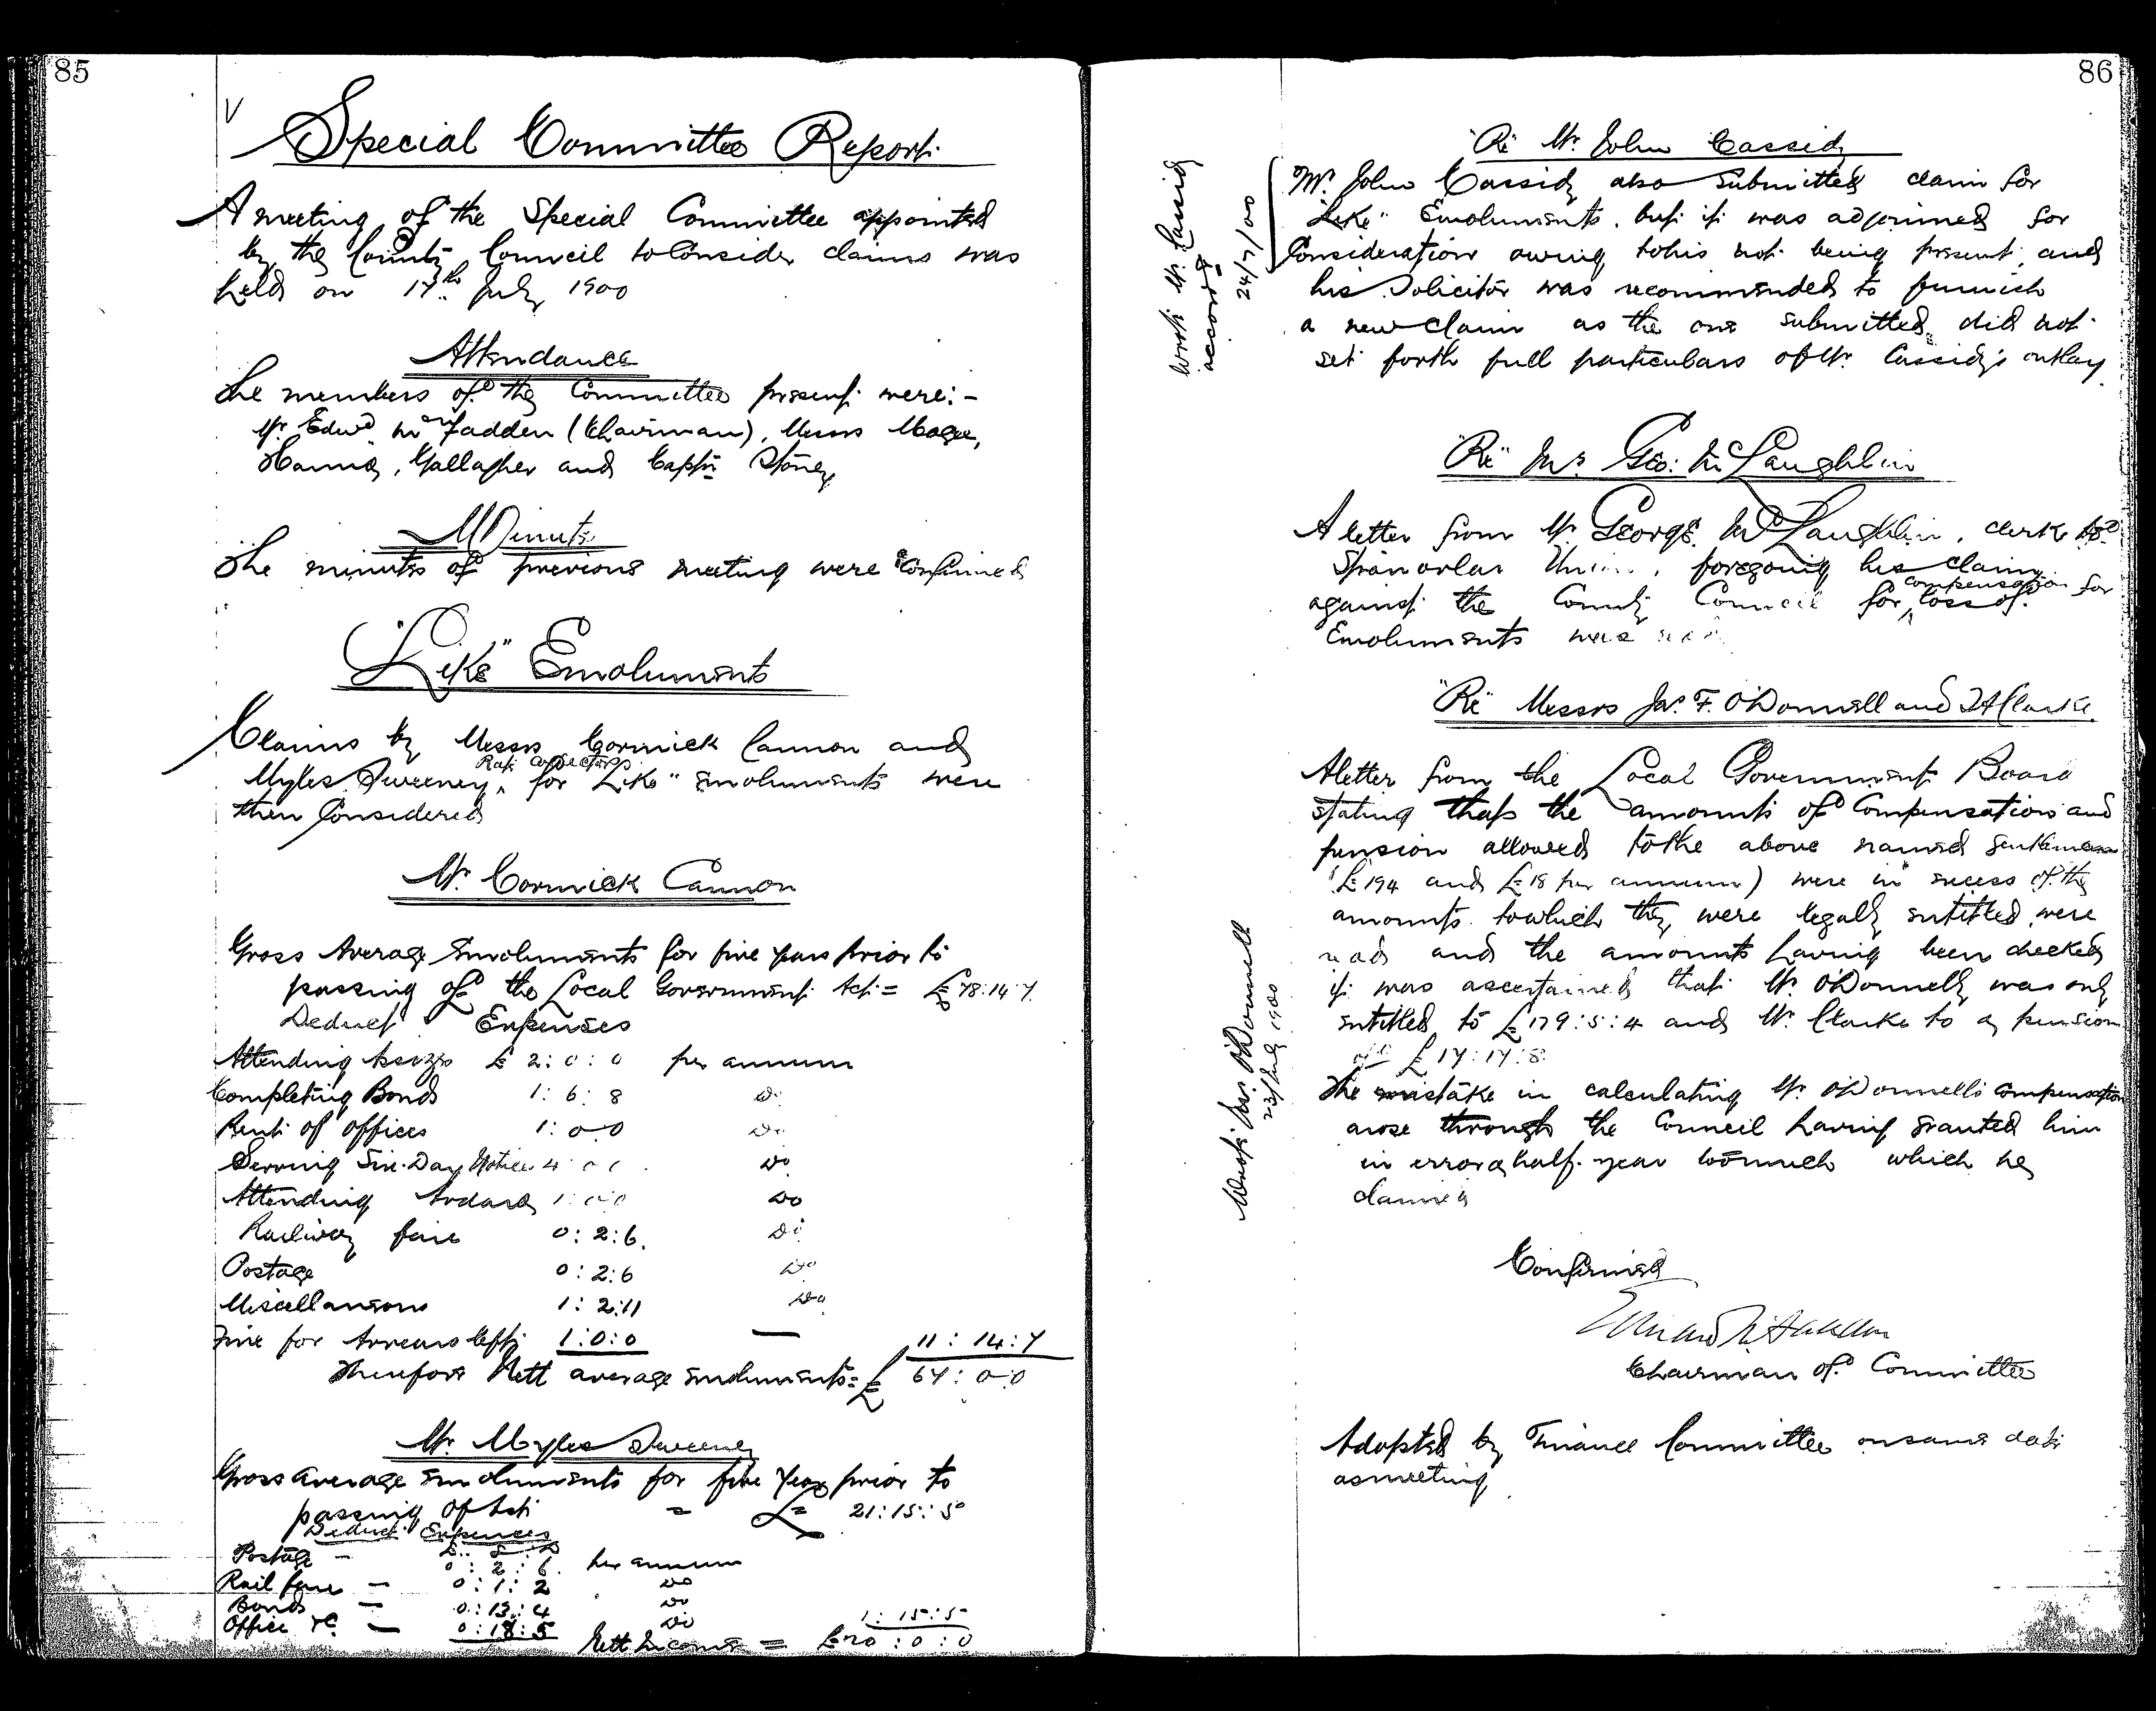 85
Special Committee Report
A meeting of the Special Committee appointed
by the County Council to Consider claims was
held on 17th July 1900
Attendance
The members of the Committee present were:-
Mr Edwd McFadden (Chairman), Messrs Magee,
Hanna, Gallagher and Captn Stoney
Minutes
The minutes of previous meeting were Confirmed
"Like" Emoluments
Claims by Messrs Cormick Cannon and
Myles Sweeney, Rate Collectors for "Like" emoluments were
then Considered
Mr. Cormick Cannon
Gross Average Emoluments for five years prior to
passing of the Local Government Act = £78:14:7
Deduct Expenses
Attending Assizes £ 2:0:0 per annum
Completing Bonds 1:6:8 Do
Rent of offices 1:0:0 Do
Serving Six-Day Notices 4:0:0 Do
Attending Audard 1:0:0 Do
Railway fare 0:2:6 Do
Postage 0:2:6 Do
Miscellaneous 1:2:11 Do
Fine for Arrears left 1:0:0 — 11:14:7
Therefore Nett average emoluments = £ 67:0:0
Mr. Myles Sweeney
Gross average emoluments for five years prior to
passing of Act = £ 21:15:5
Deduct Expenses
£ : S : D
Postage — 0:2:6 per annum
Rail fare — 0:1:2 Do
Bonds — 0:13:4 Do
Office &c. — 0:18:5 Do 1:15:5
Nett Income = £20:0:0
86
"Re" Mr. John Cassidy
Mr. John Cassidy also submitted claim for
"Like" Emoluments. but it was adjourned for
Consideration owing to his not being present, and
his Solicitor was recommended to furnish
a new claim as the one submitted did not
set forth full particulars of Mr. Cassidy's outlay
Wrote Mr. Cassidy
accordg
24/7/00
"Re" Mr Geo: McLaughlin
A letter from Mr. George McLaughlin, clerk to
Stranorlar Union, foregoing his claim
against the County Council for compensation for loss of
Emoluments was read
"Re" Messrs Jas. F. O'Donnell and Clarke
A letter from the Local Government Board
stating that the amounts of Compensation and
pension allowed to the above named gentlemen
(£194 and £18 per annum) were in excess of the
amounts to which they were legally entitled were
read and the amounts having been checked
it was ascertained that Mr. O'Donnell was only
entitled to £179:5:4 and Mr. Clarke to a pension
of £17:17:8.
The mistake in calculating Mr. O'Donnell's compensation
arose through the Council having granted him
in error a half-year too much which he
claimed
Wrote Jas. O'Donnell
23/July 1900
Confirmed
Edward McFadden
Chairman of Committee
Adopted by Finance Committee on same date
as meeting